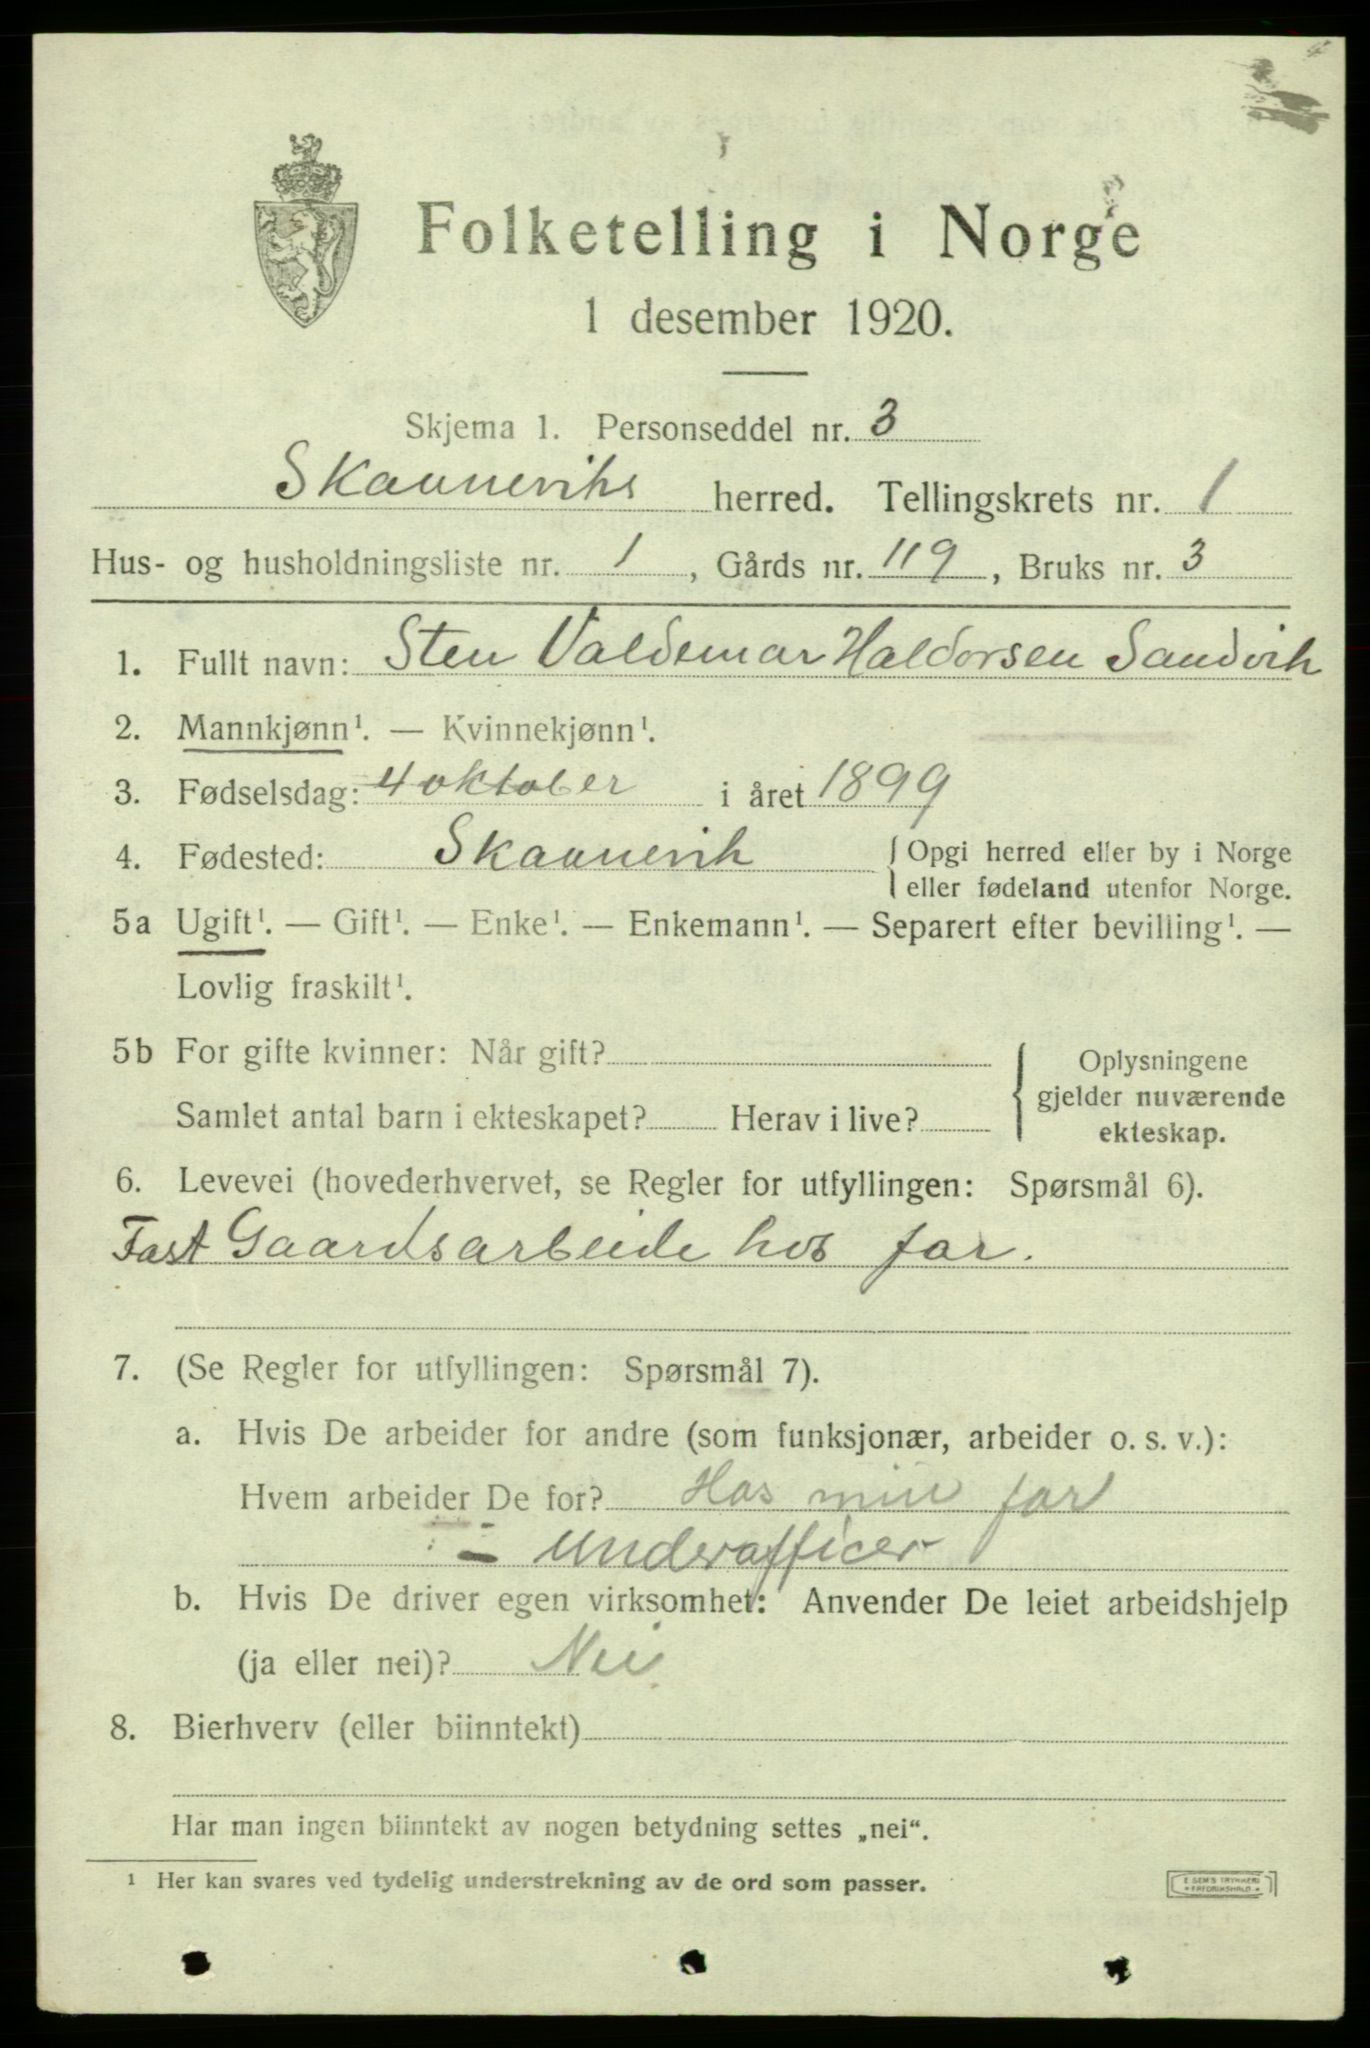 Folketelling i Norge
1 desember 1920.
Skjema 1. Personseddel nr. 3
Skaaneviks herred. Tellingskrets nr. 1
Hus- og husholdningsliste nr. 1, Gårds nr. 119, Bruks nr. 3
1. Fullt navn: Sten Valdemar Haldorsen Sandvik
2. Mannkjønn¹. — Kvinnekjønn¹.
3. Fødselsdag: 4 oktober i året 1899
4. Fødested: Skaanevik { Opgi herred eller by i Norge
eller fødeland utenfor Norge.
5a Ugift¹. — Gift¹. — Enke¹. — Enkemann¹. — Separert efter bevilling¹. —
Lovlig fraskilt¹.
5b For gifte kvinner: Når gift?
Samlet antal barn i ekteskapet? Herav i live?
{ Oplysningene
gjelder nuværende
ekteskap.
6. Levevei (hovederhvervet, se Regler for utfyllingen: Spørsmål 6).
Fast Gaardsarbeide hos far.
7. (Se Regler for utfyllingen: Spørsmål 7).
a. Hvis De arbeider for andre (som funksjonær, arbeider o. s. v.):
Hvem arbeider De for? Hos min far
- Underofficer
b. Hvis De driver egen virksomhet: Anvender De leiet arbeidshjelp
(ja eller nei)? Nei
8. Bierhverv (eller biinntekt)
Har man ingen biinntekt av nogen betydning settes „nei“.
¹ Her kan svares ved tydelig understrekning av de ord som passer.
E SEM'S TRYKKERI
FREDRIKSHALD